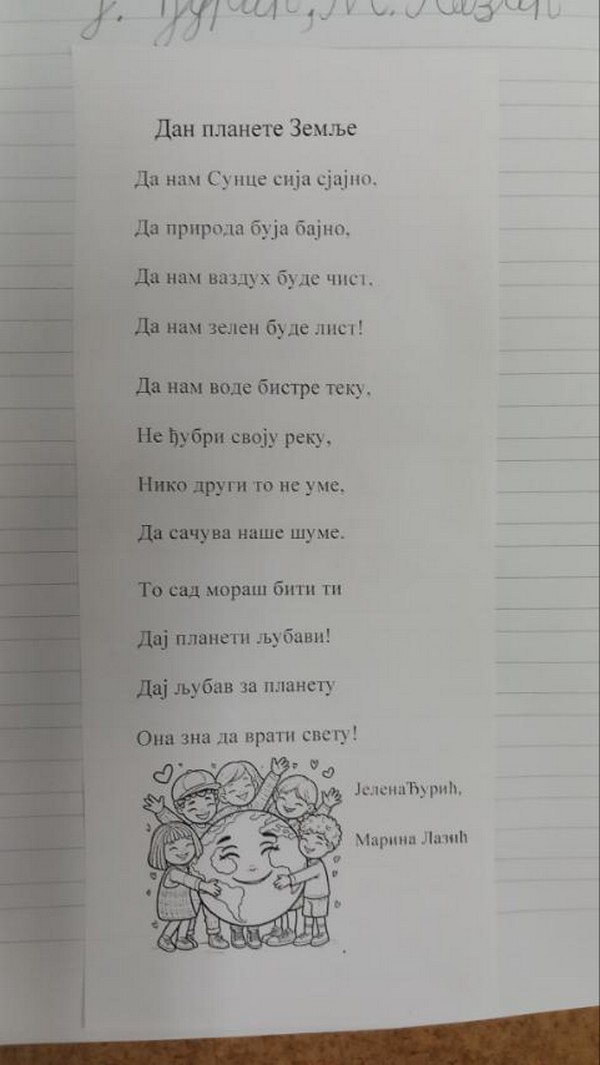 Ј. Ђурић, М. Лазић
Дан планете Земље
Да нам Сунце сија сјајно,
Да природа буја бајно,
Да нам ваздух буде чист,
Да нам зелен буде лист!
Да нам воде бистре теку,
Не ђубри своју реку,
Нико други то не уме,
Да сачува наше шуме.
То сад мораш бити ти
Дај планети љубави!
Дај љубав за планету
Она зна да врати свету!
ЈеленаЂурић,
Марина Лазић